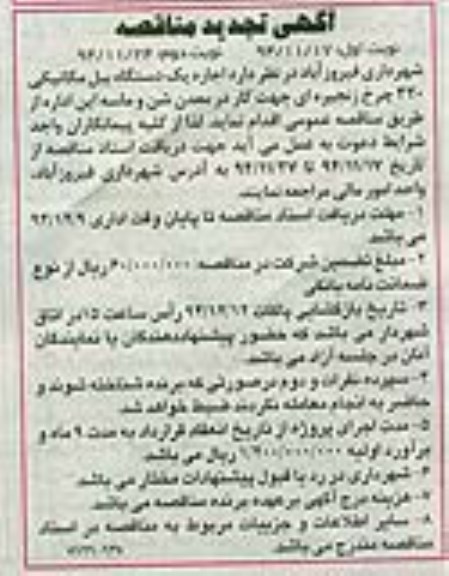 آگهی تجدید مناقصه
نوبت اول: ۹۴/۱۱/۱۷ نوبت دوم: ۹۴/۱۱/۲۴
شهرداری فیروزآباد در نظر دارد اجاره یک دستگاه بیل مکانیکی
۲۲۰ چرخ زنجیره ای جهت کار در معدن شن و ماسه این اداره از
طریق مناقصه عمومی اقدام نماید. لذا از کلیه پیمانکاران واجد
شرایط دعوت به عمل می آید جهت دریافت اسناد مناقصه از
تاریخ ۹۴/۱۱/۱۷ تا ۹۴/۱۱/۲۷ به آدرس شهرداری فیروزآباد،
واحد امور مالی مراجعه نمایند.
۱- مهلت دریافت اسناد مناقصه تا پایان وقت اداری ۹۴/۱۲/۹
می باشد.
۲- مبلغ تضمین شرکت در مناقصه: ۶۰/۰۰۰/۰۰۰ ریال از نوع
ضمانت نامه بانکی
۳- تاریخ بازگشایی پاکات ۹۴/۱۲/۱۲ رأس ساعت ۱۵ در اتاق
شهردار می باشد که حضور پیشنهاددهندگان یا نمایندگان
آنان در جلسه آزاد می باشد.
۴- سپرده نفرات و دوم درصورتی که برنده شناخته شوند و
حاضر به انجام معامله نگردند ضبط خواهد شد.
۵- مدت اجرای پروژه از تاریخ انعقاد قرارداد به مدت ۹ ماه و
برآورد اولیه ۱/۲۰۰/۰۰۰/۰۰۰ ریال می باشد.
۶- شهرداری در رد یا قبول پیشنهادات مختار می باشد.
۷- هزینه درج آگهی بر عهده برنده مناقصه می باشد.
۸- سایر اطلاعات و جزییات مربوط به مناقصه در اسناد
مناقصه مندرج می باشد.